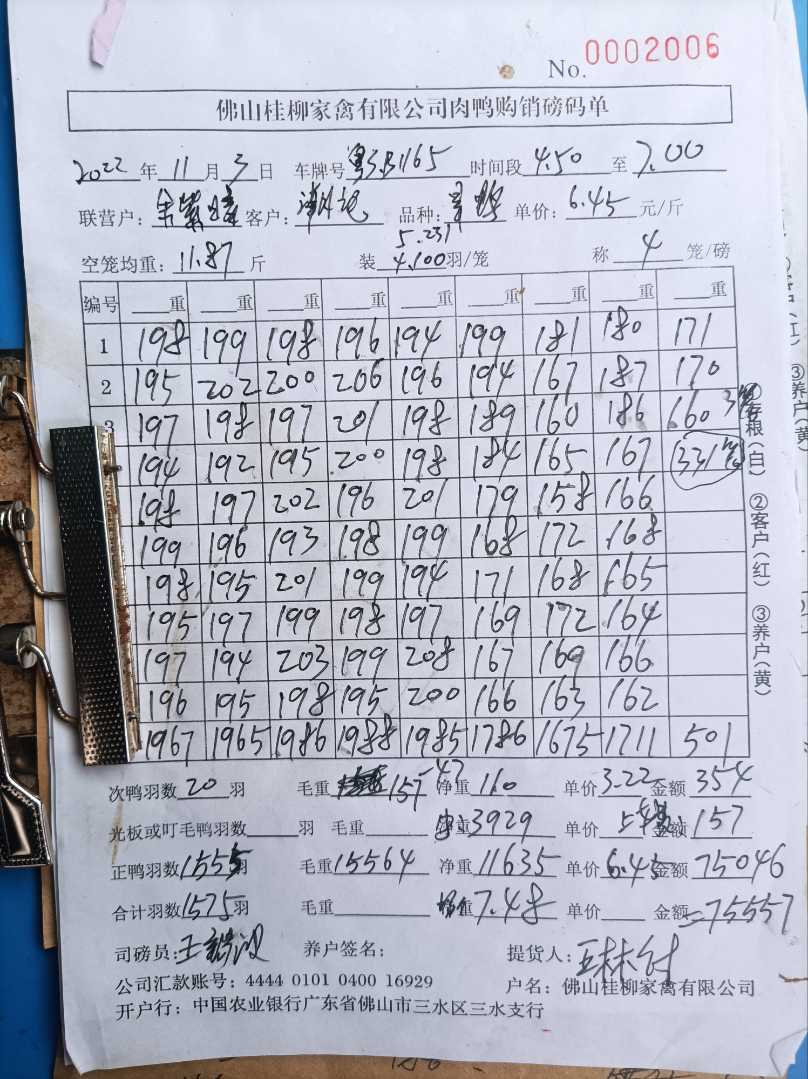 No. 0002006
佛山桂柳家禽有限公司肉鸭购销磅码单
2022 年 11 月 3 日 车牌号 粤 B1165 时间段 4.50 至 7.00
联营户: 客户: 品种: 单价: 6.45 元/斤
5.231
空笼均重: 11.87 斤 装 4.100 羽/笼 称 4 笼/磅
编号 重 重 重 重 重 重 重 重 重
1 198 199 198 196 194 199 181 180 171
2 195 202 200 206 196 194 167 187 170
3 197 198 197 201 198 189 160 186 160 3笼
194 192 195 200 198 184 165 167 331笼
198 197 202 196 201 179 158 166
199 196 193 198 199 168 172 168
198 195 201 199 194 171 168 165
195 197 199 198 197 169 172 164
197 194 203 199 208 167 169 166
196 195 198 195 200 166 163 162
1967 1965 1986 1988 1985 1786 1675 1711 501
次鸭羽数 20 羽 毛重 157 -47 净重 110 单价 3.22 金额 354
光板或叮毛鸭羽数 羽 毛重 重 3929 单价 金额 157
正鸭羽数 1555 羽 毛重 15564 净重 11635 单价 6.45 金额 75046
合计羽数 1575 羽 毛重 重 7.48 单价 金额 =75557
司磅员: 王 养户签名: 提货人:
公司汇款账号: 4444 0101 0400 16929 户名: 佛山桂柳家禽有限公司
开户行: 中国农业银行广东省佛山市三水区三水支行
①存根(白) ②客户(红) ③养户(黄)